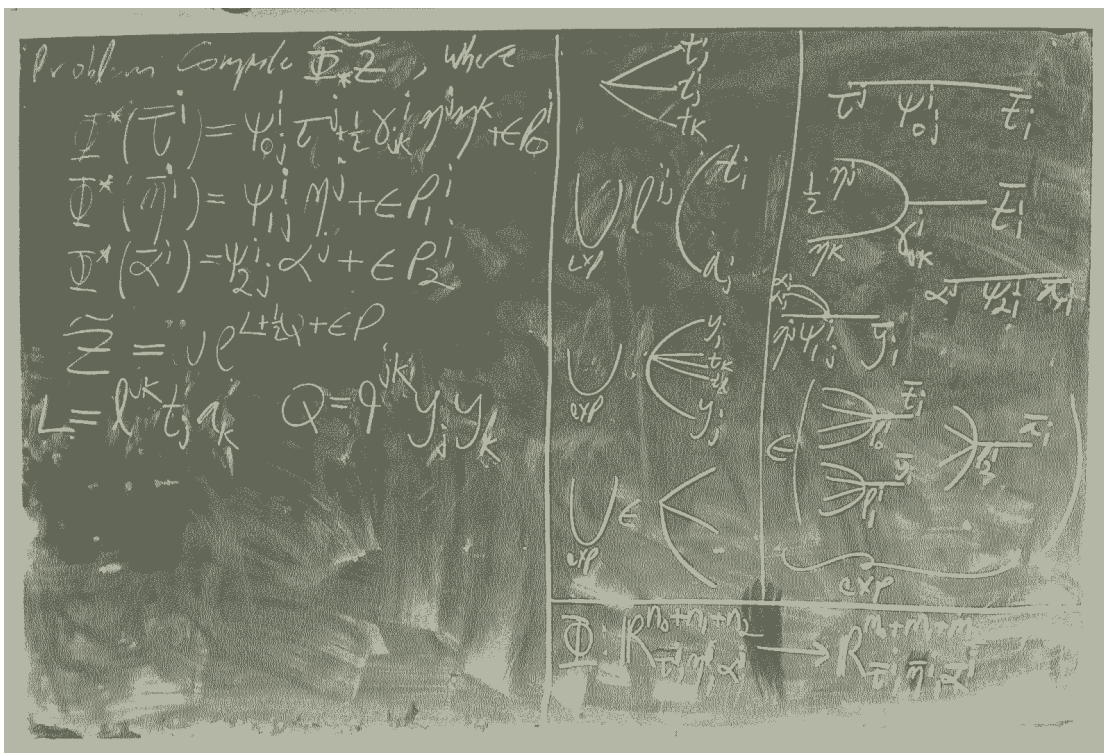 Problem Compute \widetilde{Φ_* Z}, where
Φ^*(\bar{τ}^i) = ψ_{0j}^i τ^j + ½ γ_{jk}^i η^j η^k + ϵP_0^i
Φ^*(\bar{η}^i) = ψ_{1j}^i η^j + ϵP_1^i
Φ^*(\bar{α}^i) = ψ_{2j}^i α^j + ϵP_2^i
\tilde{Z} = υ e^{L+½Q+ϵP}
L = l^{jk} t_j a_k Q = q^{jk} y_j y_k
t_j
t_j
t_k
exp
l^{ij}
t_i
a_j
exp
y_i
t_k
y_j
exp
ϵ
τ^j ψ_{0j}^i \bar{t}_i
½ η^j
η^k
γ_{jk}^i \bar{t}_i
α^j ψ_{2j}^i \bar{a}_i
η^j ψ_{1j}^i \bar{y}_i
ϵ
P_0^i \bar{t}_i
P_2^i \bar{a}_i
P_1^i \bar{y}_i
exp
Φ: R^{n_0+n_1+n_2}_{τ^j η^j α^j} → R_{\bar{τ}^i \bar{η}^i \bar{α}^i}